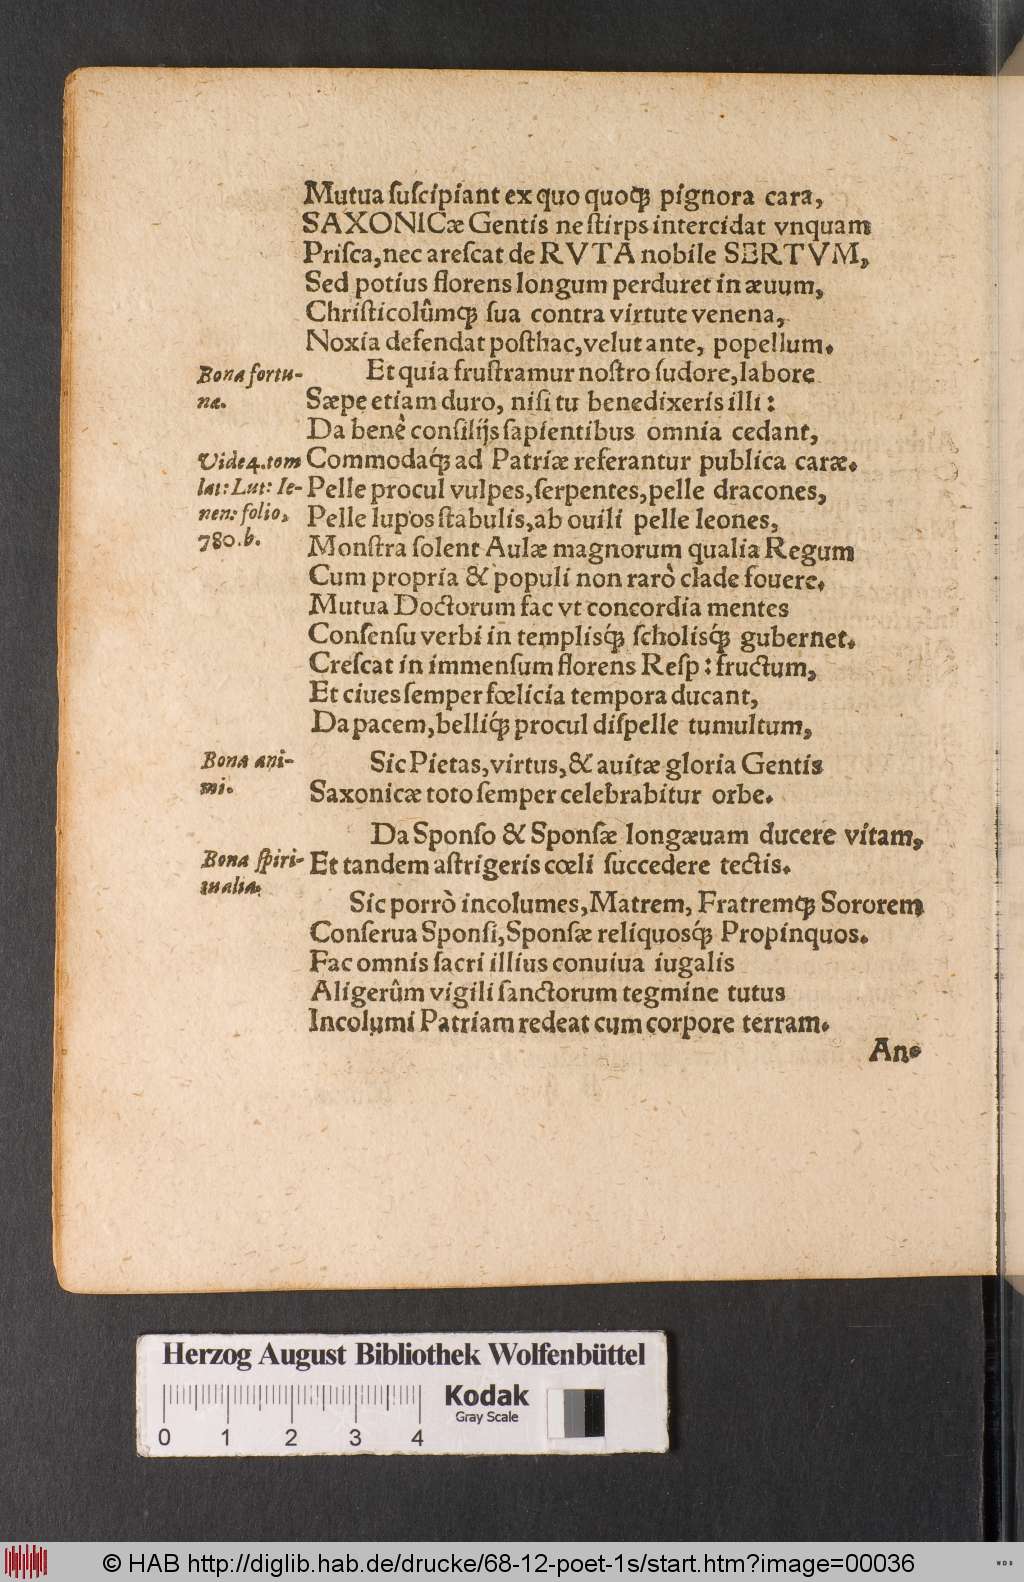 Mutua ſuſcipiant ex quo quoꝗ pignora cara,
SAXONICæ Gentis ne ſtirps intercidat vnquam
Priſca, nec areſcat de RVTA nobile SERTVM,
Sed potius florens longum perduret in æuum,
Chriſticolûmꝗ ſua contra virtute venena,
Noxia defendat poſthac, velut ante, popellum.
Bona fortu-
na.
Et quia fruſtramur noſtro ſudore, labore
Sæpe etiam duro, niſi tu benedixeris illi:
Da benè conſilijs ſapientibus omnia cedant,
Vide 4. tom
lat: Lut: Ie-
nen: folio,
780. b.
Commodaq́ꝫ ad Patriæ referantur publica caræ.
Pelle procul vulpes, ſerpentes, pelle dracones,
Pelle lupos ſtabulis, ab ouili pelle leones,
Monſtra ſolent Aulæ magnorum qualia Regum
Cum propria & populi non rarò clade fouere.
Mutua Doctorum fac vt concordia mentes
Conſenſu verbi in templisq́ꝫ ſcholisq́ꝫ gubernet.
Creſcat in immenſum florens Reſp: fructum,
Et ciues ſemper fœlicia tempora ducant,
Da pacem, belliq́ꝫ procul diſpelle tumultum,
Bona ani-
mi.
Sic Pietas, virtus, & auitæ gloria Gentis
Saxonicæ toto ſemper celebrabitur orbe.
Da Sponſo & Sponſæ longæuam ducere vitam,
Bona ſpiri-
tualia.
Et tandem aſtrigeris cœli ſuccedere tectis.
Sic porrò incolumes, Matrem, Fratremꝗ Sororem
Conſerua Sponſi, Sponſæ reliquosq́ꝫ Propinquos.
Fac omnis ſacri illius conuiua iugalis
Aligerûm vigili ſanctorum tegmine tutus
Incolumi Patriam redeat cum corpore terram.
An-
Herzog August Bibliothek Wolfenbüttel
Kodak
Gray Scale
0 1 2 3 4
© HAB http://diglib.hab.de/drucke/68-12-poet-1s/start.htm?image=00036